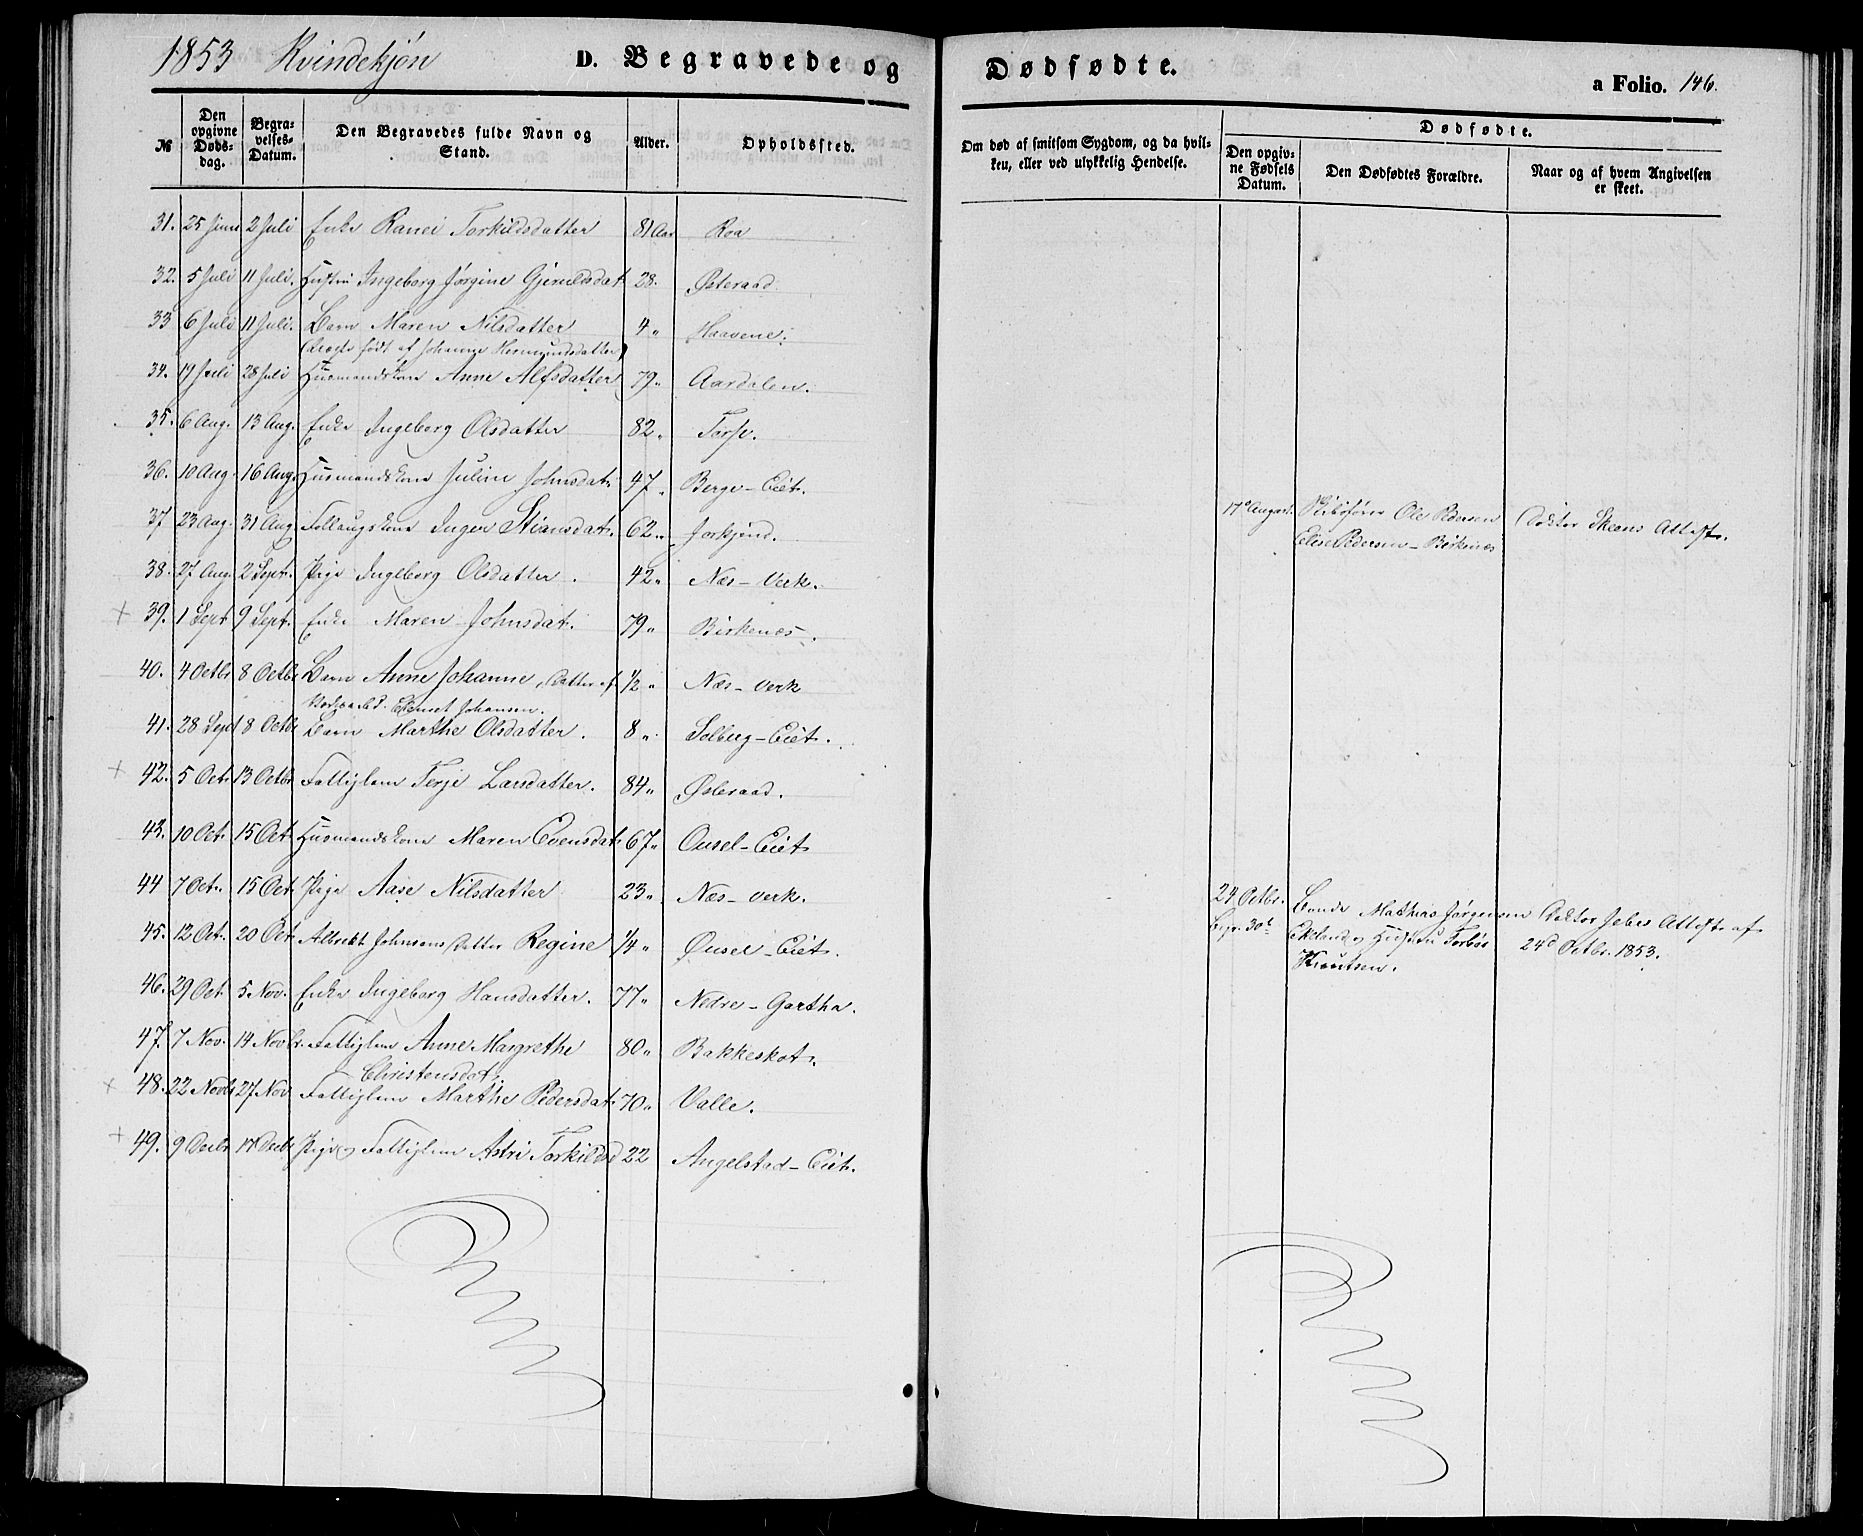 1853 Kvindekjøn D. Begravede og Dødfødte. a Folio. 146.
№ Den opgivne Døds-dag. Begra-velses-Datum. Den Begravedes fulde Navn og Stand. Alder. Opholdssted. Om død af smitsom Sygdom, og da hvil-ken, eller ved ulykkelig Hendelse. Dødfødte. Den opgiv-ne Fødsels Datum. Den Dødfødtes Forældre. Naar og af hvem Angivelsen er skeet.
31. 25 Juni 2 Juli Enke Ranei Torkildsdatter 81 Aar Roa
32. 5 Juli 11 Juli. Hustru Ingeborg Jørgine Gjeruldsdat 28. Østeraad
33 6 Juli 11 Juli. Barn Maren Nilsdatter 4 " Haavene.
(uægte født af Johanne Hermundsdatter)
34. 19 Juli 28 Juli Husmandskone Anne Alfsdatter 79 " Aardalen.
35. 6 Aug. 13 Aug. Enke Ingeborg Olsdatter 82 "
36. 10 Aug. 16 Aug. Husmandskone Juline Johnsdat. 47 " Berge-Eiet.
37 23 Aug. 31 Aug Follaugskone Inger Stiansdat. 62 " Jorkjend. 17de August. Ole Pedersen Doktor Skeens Attest.
Elise Pedersen - Birkenes
38. 27 Aug. 2 Sept. Pige Ingeborg Olsdatter. 42 " Næs-Verk.
+ 39. 1 Sept 9 Sept. Enke Maren Johnsdat. 79 " Birkenes.
40. 4 Octbr 8 Octbr Barn Anne Johanne, Datter af 1/2 " Næs-verk
Johansen.
41. 28 Sept 8 Octbr Barn Marthe Olsdatter. 8 " Solberg-Eiet.
+ 42. 5 Oct. 13 Octbr Fattiglem Terje Larsdatter. 84 " Østeraad.
43. 10 Oct. 15 Oct. Husmandskone Maren Evensdat. 67 " Ousel-Eiet
44 7 Oct. 15 Oct. Pige Aase Nilsdatter 23 " Næs-verk. 24 Octbr. Bonde Mathias Jørgensen Doktor Jebes Attest af
45. 12 Oct. 20 Oct. Albrekt Johnsens Datter Regine 1/4 " Ousel-Eiet. Begr. 30te Ekeland og Hustru Torbør 24d Octbr. 1853.
Knutsen.
46. 29 Oct 5 Nov. Enke Ingeborg Hansdatter. 77 " Nedre-Gartha.
47. 7 Nov. 14 Novbr. Fattiglem Anne Margrethe 80 " Bakkeskot.
Christensdat.
+ 48. 22 Novbr 27 Nov. Fattiglem Marthe Pedersdat. 70 " Valle.
+ 49. 9 Decbr 17 Decbr Pige og Fattiglem Astri Torkildsd 22 Angelstad-Eiet.